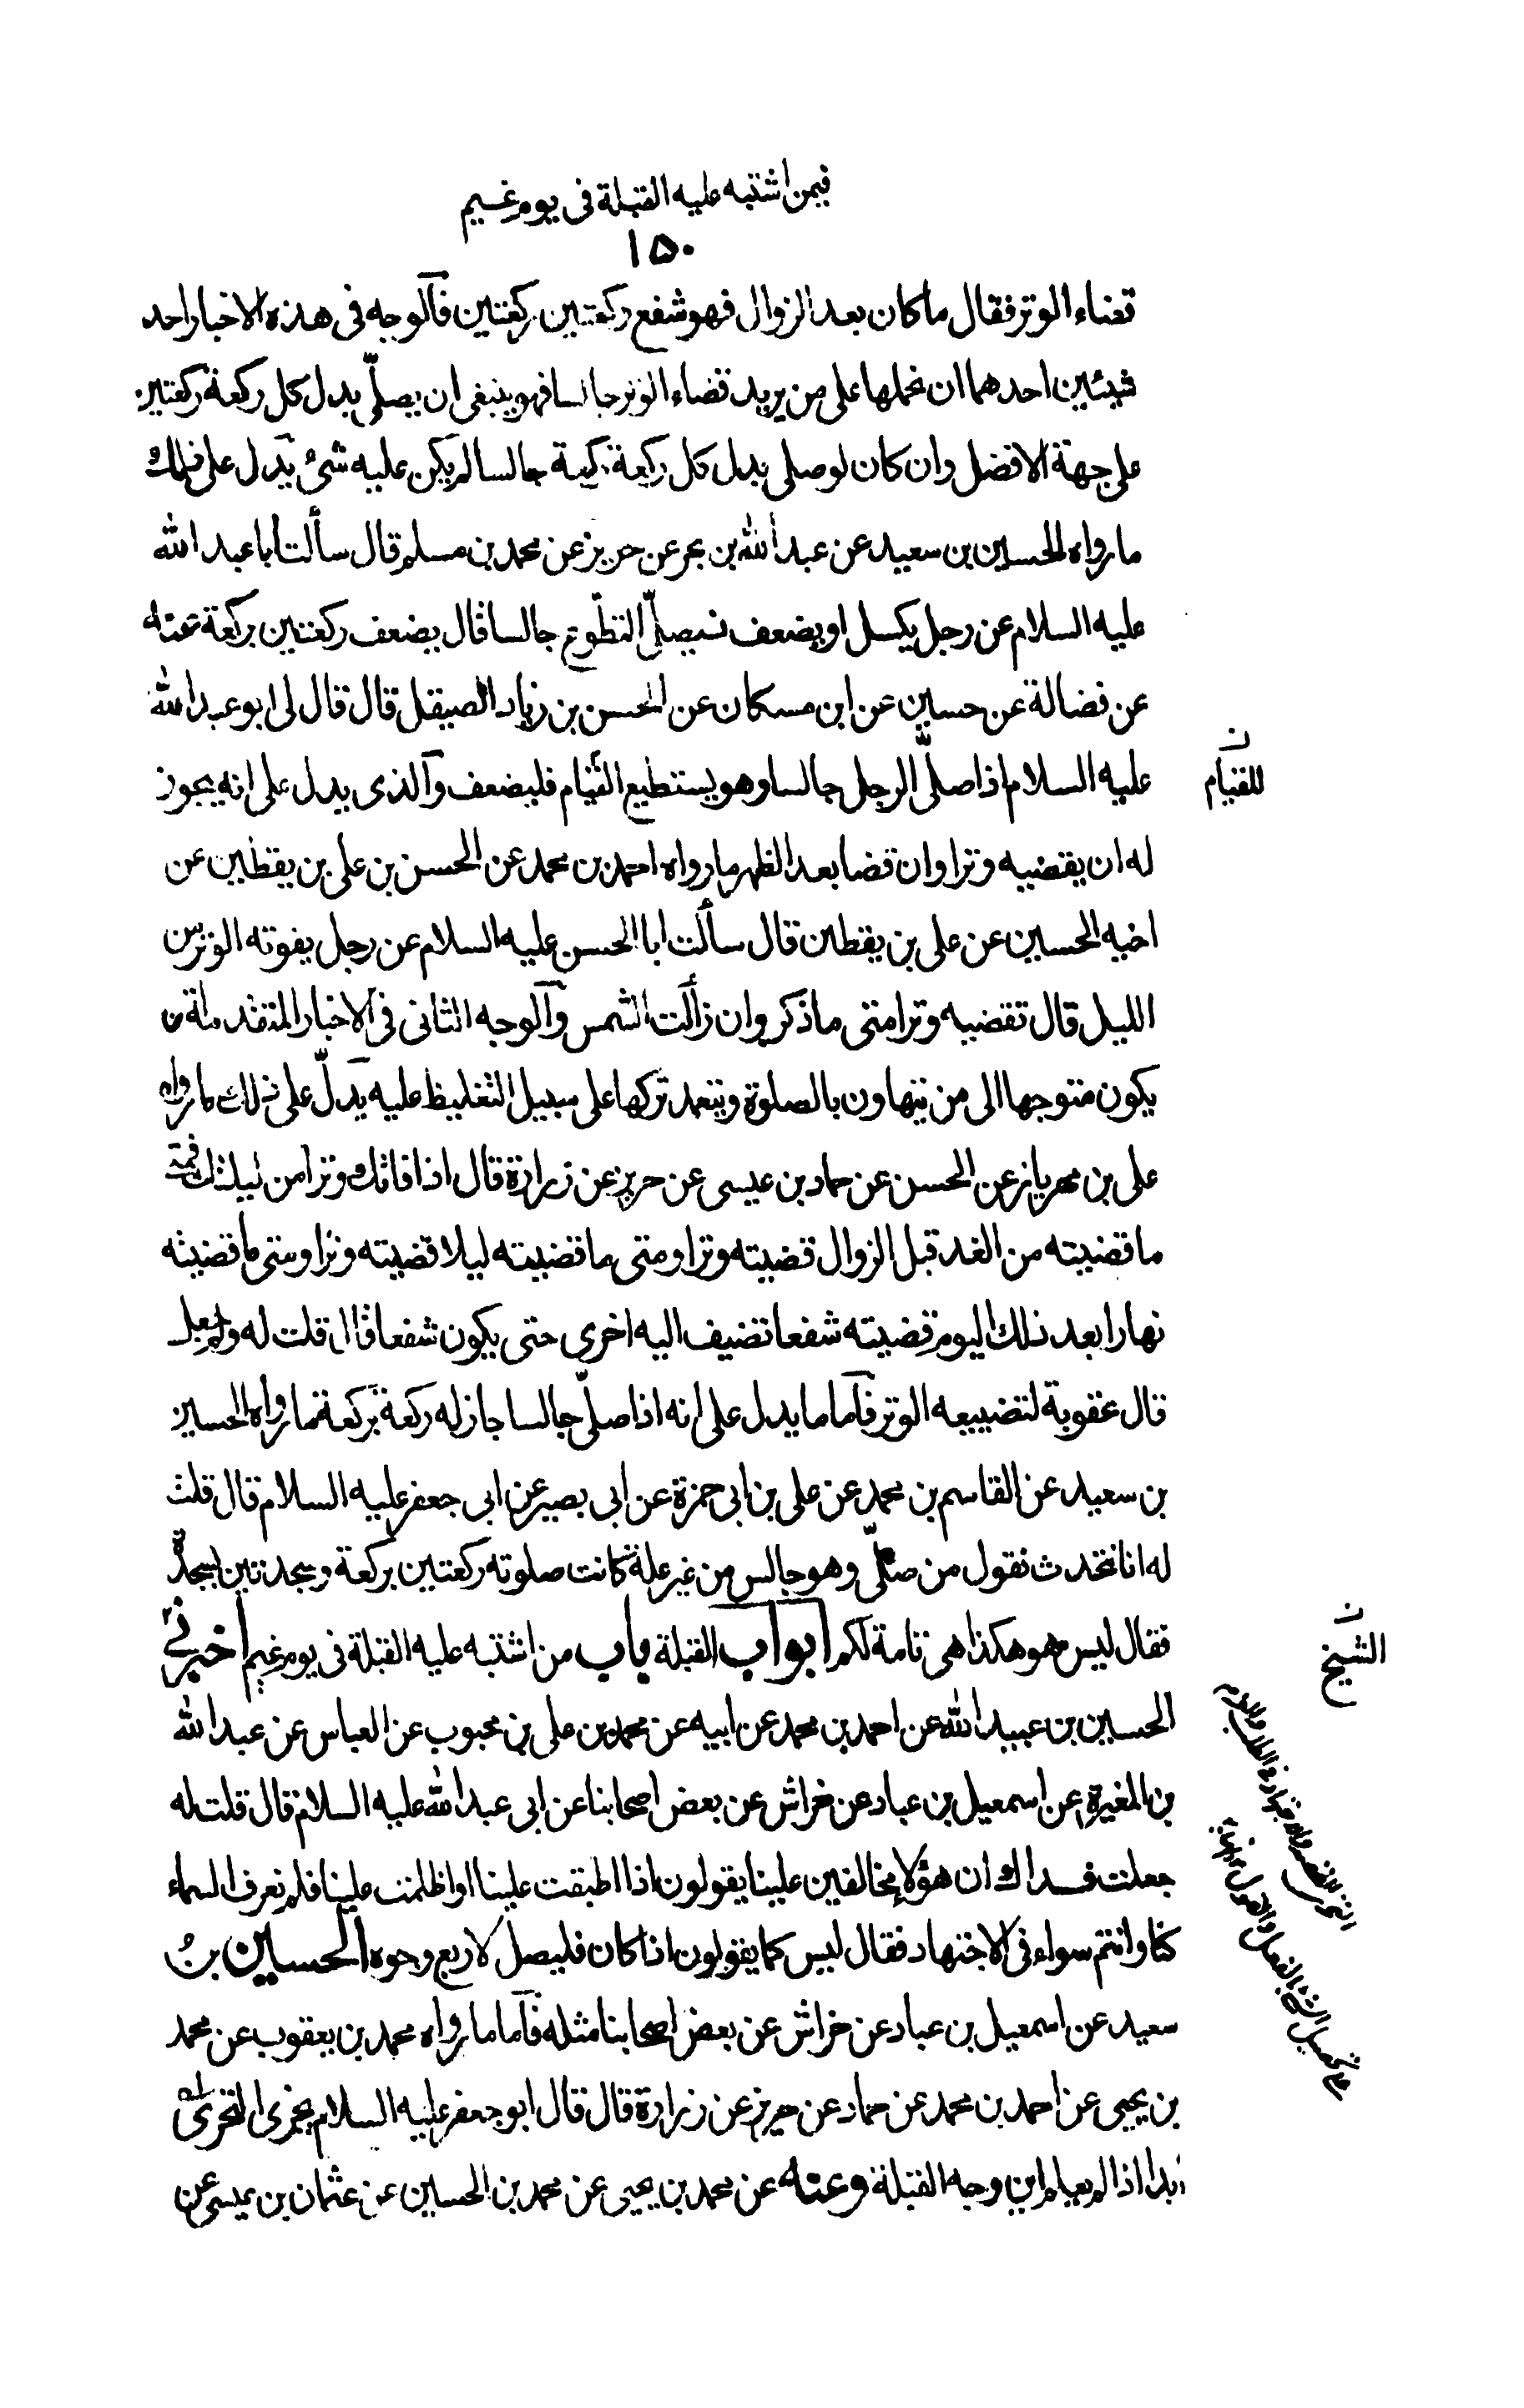 فيمن اشتبه عليه القبلة فى يوم غيم
١٥٠
قضاء الوتر فقال ما كان بعد الزوال فهو شفع ركعتين ركعتين فآلوجه فى هذه الاخبار احد
شيئين احدهما ان نحملها على من يريد قضاء الوتر جالسا فهو ينبغى ان يصلّى بدل كل ركعة ركعتين
على جهة الافضل وان كان لو صلى بدل كل ركعة ركعة جالسا لم يكن عليه شئ يدل على ذلك
ما رواه الحسين بن سعيد عن عبد الله بن بحر عن حريز عن محمد بن مسلم قال سألت أبا عبد الله
عليه السلام عن رجل يكسل او يضعف فيصلّى التطوّع جالسا قال يضعف ركعتين بركعة عنه
عن فضالة عن حسين عن ابن مسكان عن الحسن بن زياد الصيقل قال قال لى ابو عبد الله
عليه السلام اذا صلّى الرجل جالسا وهو يستطيع القيام فليضعف وآلذى يدل على انه يجوز
للقيام
له ان يقضيه وترا وان قضا بعد الظهر ما رواه احمد بن محمد عن الحسن بن على بن يقطين عن
اخيه الحسين عن على بن يقطين قال سألت ابا الحسن عليه السلام عن رجل يفوته الوتر من
الليل قال تقضيه وترا متى ما ذكر وان زالت الشمس وآلوجه الثانى فى الاخبار المتقدمة ان
يكون متوجها الى من يتهاون بالصلوة ويتعمد تركها على سبيل التغليظ عليه يدلّ على ذلك ما رواه
على بن مهريار عن الحسن عن حماد بن عيسى عن حريز عن زرارة قال اذا فاتك وترا من ليلتك فمتى
ما قضيته من الغد قبل الزوال قضيته وترا ومتى ما قضيته ليلا قضيته وترا ومتى ما قضيته
نهارا بعد ذلك اليوم قضيته شفعا تضيف اليه اخرى حتى يكون شفعا قال قلت له ولم جعل
قال عقوبة لتضييعه الوتر فآما ما يدل على انه اذا صلّى جالسا جاز له ركعة بركعة فما رواه الحسين
بن سعيد عن القاسم بن محمد عن على بن ابى حمزة عن ابى بصير عن ابى جعفر عليه السلام قال قلت
له انا نتحدث نقول من صلّى وهو جالس من غير علة كانت صلوته ركعتين بركعة وسجدتين بسجدة
فقال ليس هو هكذا هى تامة لكم ابواب القبلة باب من اشتبه عليه القبلة فى يوم غيم اخبرنى
الشيخ
الحسين بن عبيد الله عن احمد بن محمد عن ابيه عن محمد بن على بن محبوب عن العباس عن عبد الله
بن المغيرة عن اسمعيل بن عباد عن خراش عن بعض اصحابنا عن ابى عبد الله عليه السلام قال قلت له
جعلت فداك ان هؤلاء مخالفين علينا يقولون اذا اطبقت علينا او اظلمت علينا فلم نعرف السماء
كنا وانتم سواء فى الاجتهاد فقال ليس كما يقولون اذا كان فليصل لاربع وجوه الحسين بن
سعيد عن اسمعيل بن عباد عن خراش عن بعض اصحابنا مثله فآما ما رواه محمد بن يعقوب عن محمد
بن يحيى عن احمد بن محمد عن حماد عن حريز عن زرارة قال قال ابو جعفر عليه السلام يجزى التحرى
ابدا اذا لم يعلم اين وجه القبلة وعنه عن محمد بن يحيى عن محمد بن الحسين عن عثمان بن عيسى عن